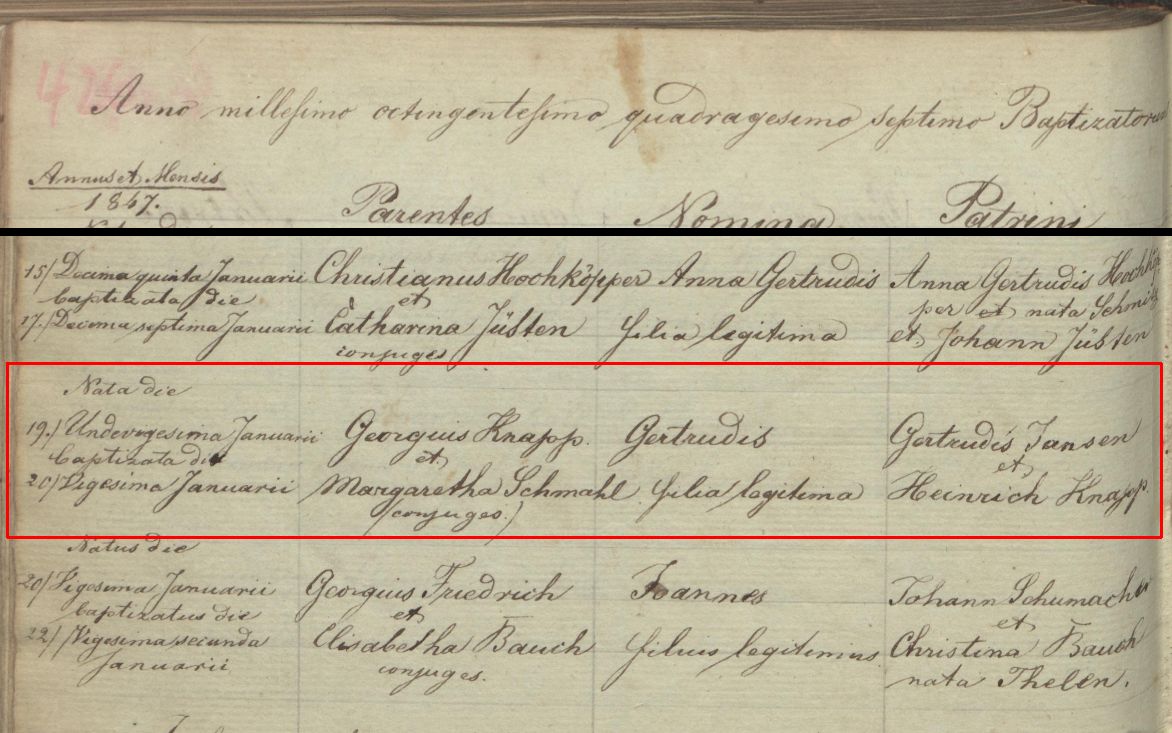 Anno millesimo octingentesimo quadragesimo septimo Baptizatorum
Annus et Mensis
1847.
Parentes Nomina Patrini
15/ Decima quinta Januarii Christianus Hochköpper Anna Gertrudis Anna Gertrudis Hochköp
baptizata die et per et nata Schmitz
17./ Decima septima Januarii Catharina Jüsten filia legitima et Johann Jüsten
conjuges
Nata die
19./ Undevigesima Januarii Georgius Knapp. Gertrudis Gertrudis Jansen
baptizata die et et
20/ Vigesima Januarii Margaretha Schmahl filia legitima Heinrich Knapp.
(conjuges.)
Natus die
20/ Vigesima Januarii Georgius Friedrich Joannes Johann Schumacher
baptizatus die et et
22/ Vigesima secunda Elisabetha Bauch filius legitimus Christina Bauch
Januarii conjuges. nata Thelen.